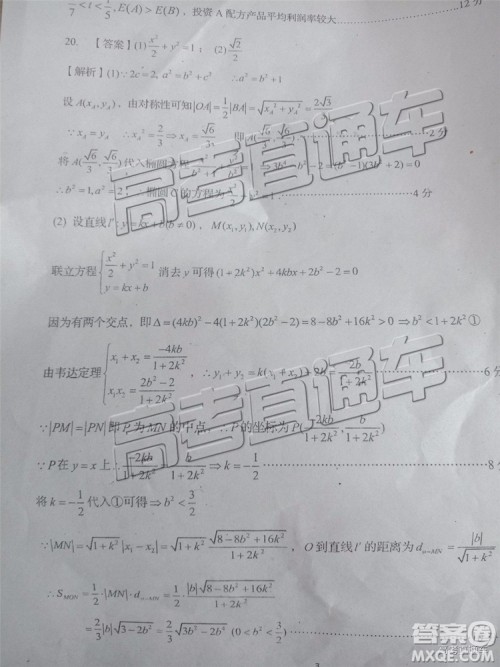 1/7<t<1/5, E(A)>E(B), 投资 A 配方产品平均利润率较大………………12 分
20. 【答案】(1) x²/2+y²=1; (2) √2/2
【解析】(1)∵2c=2, a²=b²+c² ∴a²=b²+1
设 A(x_A, y_A), 由对称性可知|OA|=1/2|BA|=√(x_A²+y_A²)=2√3/3
∵x_A=y_A ∴x_A²=2/3⇒x_A=√6/3 即A(√6/3, √6/3)………2分
将 A(√6/3, √6/3)代入椭圆方程 =1⇒3b⁴-b²-2=(b²-1)(3b²+2)=0
∴b²=1, a²=2 椭圆 C 的方程为 ………4 分
(2) 设直线 l': y=kx+b(b≠0), M(x₁,y₁), N(x₂,y₂)
联立方程{x²/2+y²=1
y=kx+b 消去 y 可得(1+2k²)x²+4kbx+2b²-2=0
因为有两个交点, 即 Δ=(4kb)²-4(1+2k²)(2b²-2)=8-8b²+16k²>0⇒b²<1+2k²①
由韦达定理{x₁+x₂=-4kb/(1+2k²)
x₁x₂=(2b²-2)/(1+2k²) ∴y₁+y₂=k(x₁+x₂)+2b=2b/(1+2k²)………6 分
∵|PM|=|PN|即 P 为 MN 的中点, ∴P 的坐标为 P(-2kb/(1+2k²), b/(1+2k²))
∵P 在 y=x 上∴-2kb/(1+2k²)=b/(1+2k²)⇒k=-1/2………8 分
将 k=-1/2 代入①可得⇒b²<3/2
∵|MN|=√(1+k²)|x₁-x₂|=√(1+k²)·√(8-8b²+16k²)/(1+2k²), O 到直线 l' 的距离为 d_{o-MN}=|b|/√(1+k²)
∴S_{MON}=1/2·|MN|·d_{o-MN}=1/2·|b|√(8-8b²+16k²)/(1+2k²)
=2/3|b|√(3-2b²)=2/3√(3b²-2b⁴) (0<b²<3/2)………
3
高考直通车
高考直通车
高考直通车
答案圈
MXQE.COM